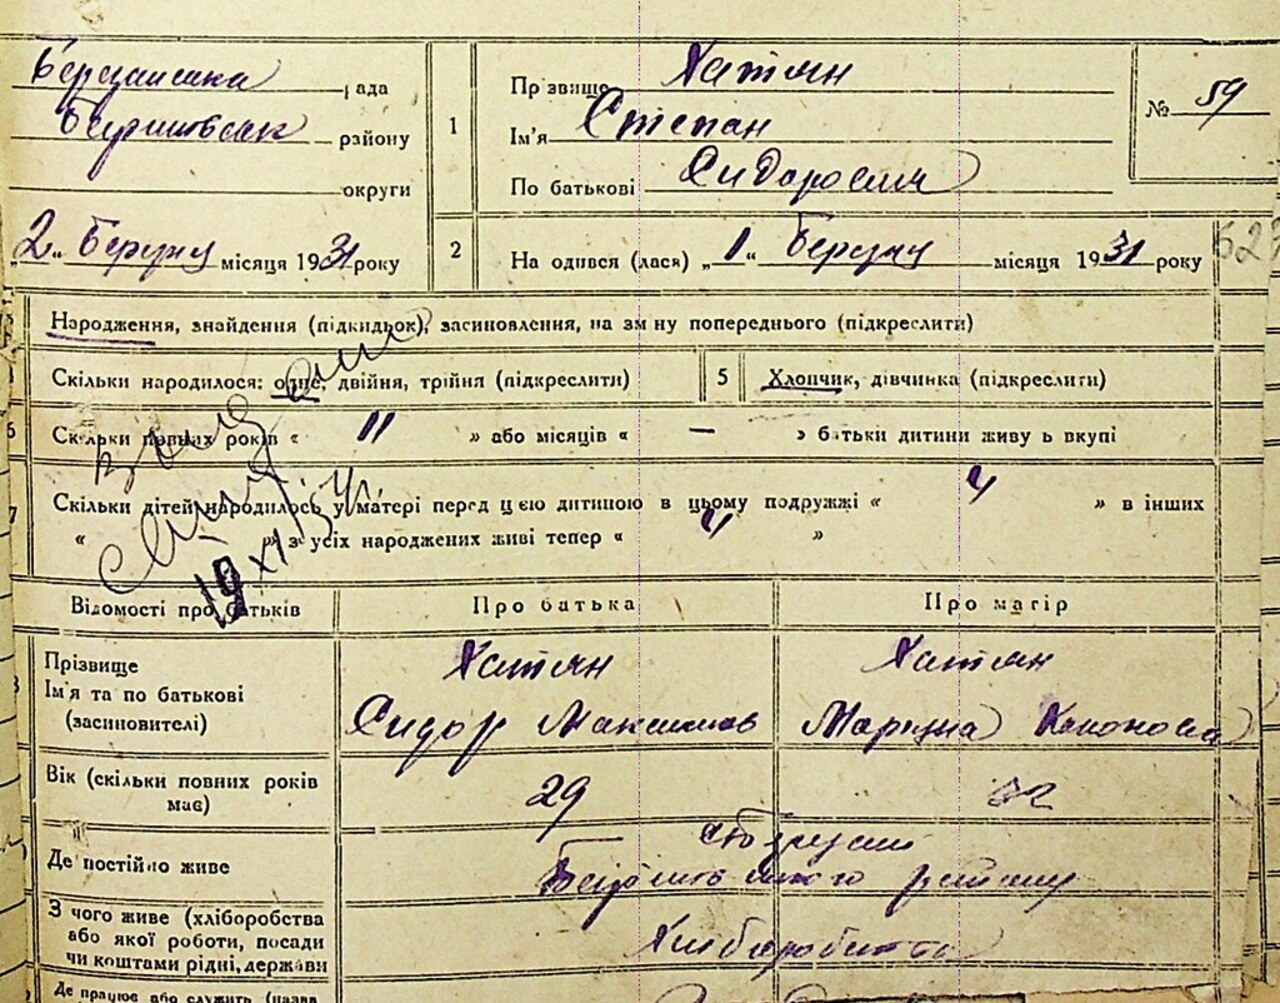 рада
району
округи
„2“ Березня місяця 1931 року
1
Прізвище Хатян
Ім'я Степан
По батькові Сидорович
№ 59
2
На одився (лася) „1“ Березня місяця 1931 року
Народження, знайдення (підкидьок), засиновлення, на зм ну попереднього (підкреслити)
Скільки народилося: одне, двійня, трійня (підкреслити)
5 Хлопчик, дівчинка (підкреслити)
6 Скільки повних років « 11 » або місяців « — » батьки дитини живу ь вкупі
7 Скільки дітей народилось у матері перед цією дитиною в цьому подружжі « 4 » в інших
« » з усіх народжених живі тепер « 4 »
19 XI
Відомості про батьків
Про батька
Про матір
Прізвище
Ім'я та по батькові
(засиновителі)
Хатян
Сидор Максимов
Хатян
Вік (скільки повних років
має)
29
32
Де постійно живе
району
З чого живе (хліборобства
або якої роботи, посади
чи коштами рідні, держави
Хліборобство
Де працює або служить (назва